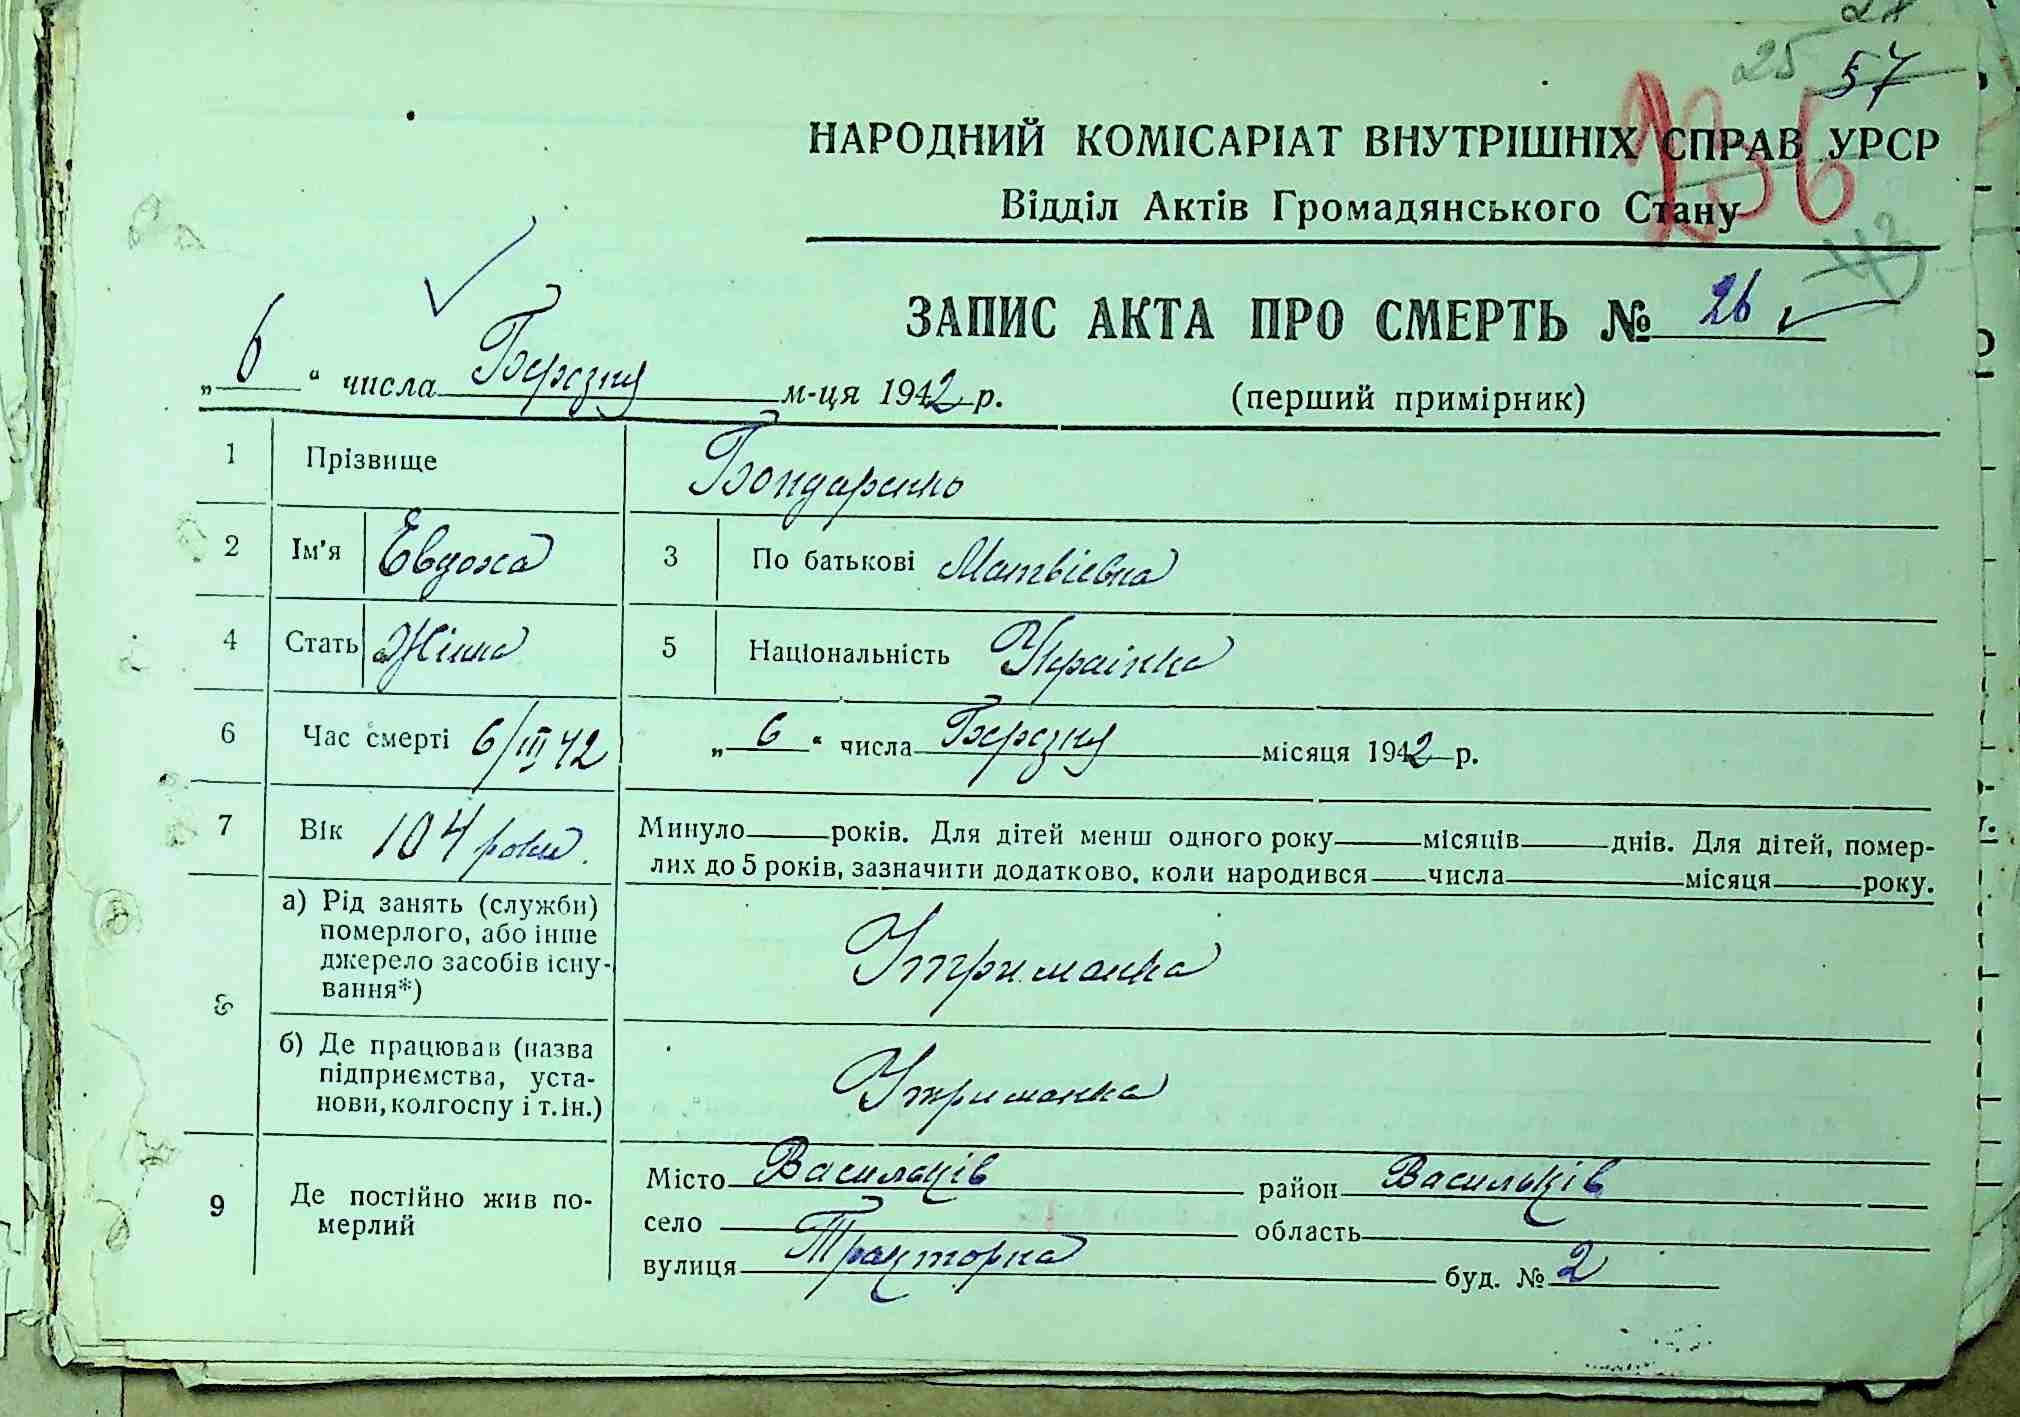 25 57
НАРОДНИЙ КОМІСАРІАТ ВНУТРІШНІХ СПРАВ УРСР
Відділ Актів Громадянського Стану
ЗАПИС АКТА ПРО СМЕРТЬ № 26
„6“ числа Березня м-ця 1942 р. (перший примірник)
1 Прізвище Бондаренко
2 Ім'я Евдоха 3 По батькові Матвієвна
4 Стать Жінка 5 Національність Українка
6 Час смерті 6/III 42 „6“ числа Березня місяця 1942 р.
7 Вік 104 роки. Минуло років. Для дітей менш одного року місяців днів. Для дітей, помер-
лих до 5 років, зазначити додатково. коли народився числа місяця року.
8 а) Рід занять (служби)
померлого, або інше
джерело засобів існу-
вання*) Утриманка
б) Де працював (назва
підприємства, уста-
нови, колгоспу і т.ін.) Утриманка
9 Де постійно жив по-
мерлий
Місто Васильків район Васильків
село область
вулиця Тракторна буд. № 2